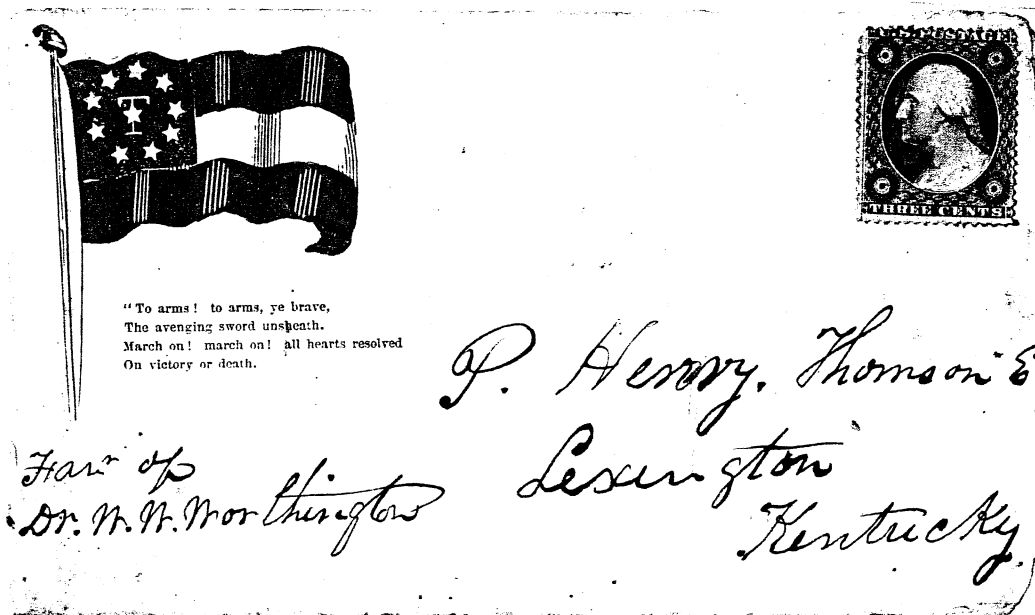 U.S. POSTAGE
THREE CENTS
T
"To arms! to arms, ye brave,
The avenging sword unsheath.
March on! march on! all hearts resolved
On victory or death.
P. Henry. Thomson E
Lexington
Kentucky
Favr of
Dr. W. W. Worthington